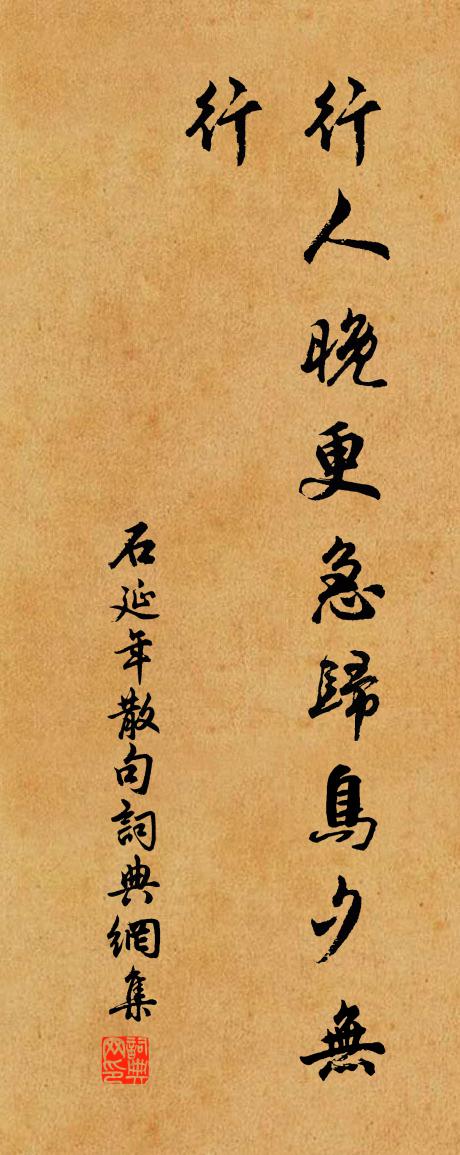 行人晚更急歸鳥夕無
行
石延年散句詞典網集
詞典網印